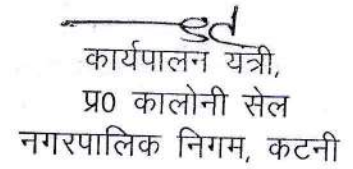 कार्यपालन यत्री,
प्र0 कालोनी सेल
नगरपालिक निगम, कटनी